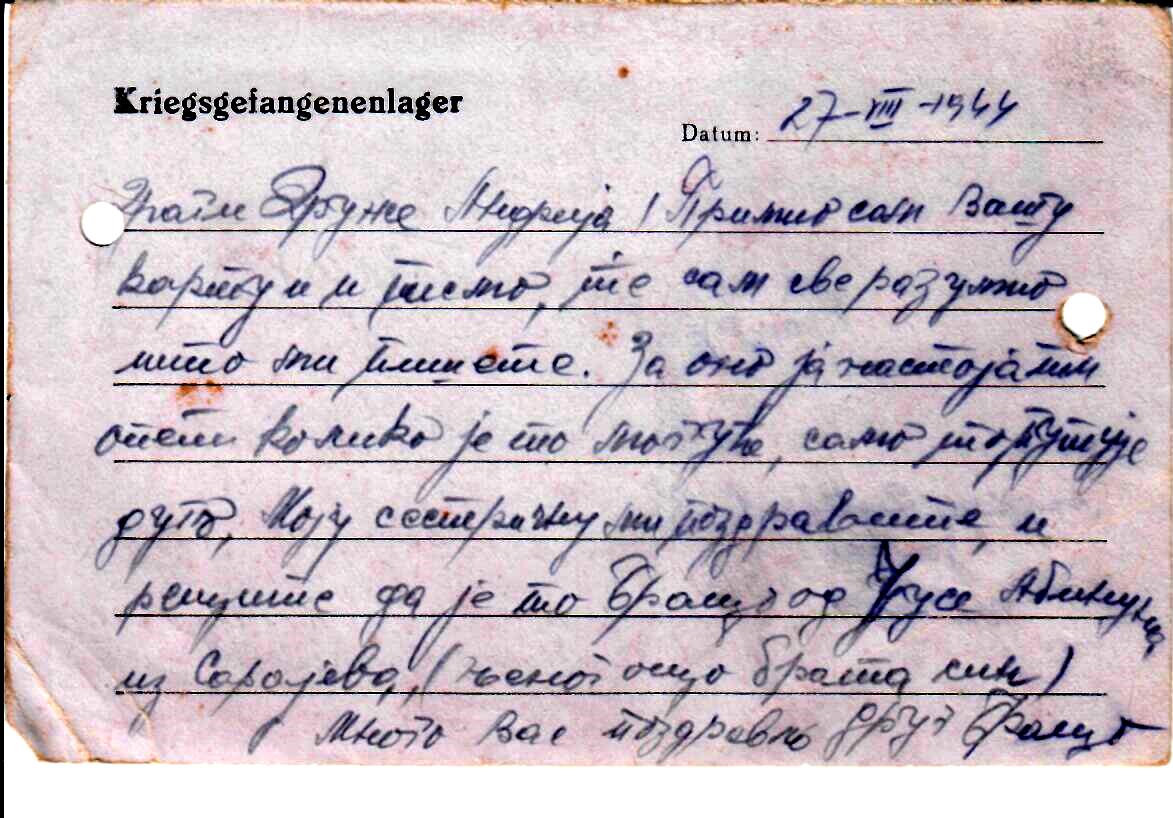 Kriegsgefangenenlager
Datum: 27-VIII-1944
Драги Друже Андрија! Примио сам Вашу
карту и и писмо, те сам све разумио
што ми пишете. За оно ја настојати
опет колико је то могуће, само то путује
дуго, Моју сестричну ми поздравите, и
реците да је то од
из Сарајева, (њеног оца брата син)
Много Вас поздравља друг